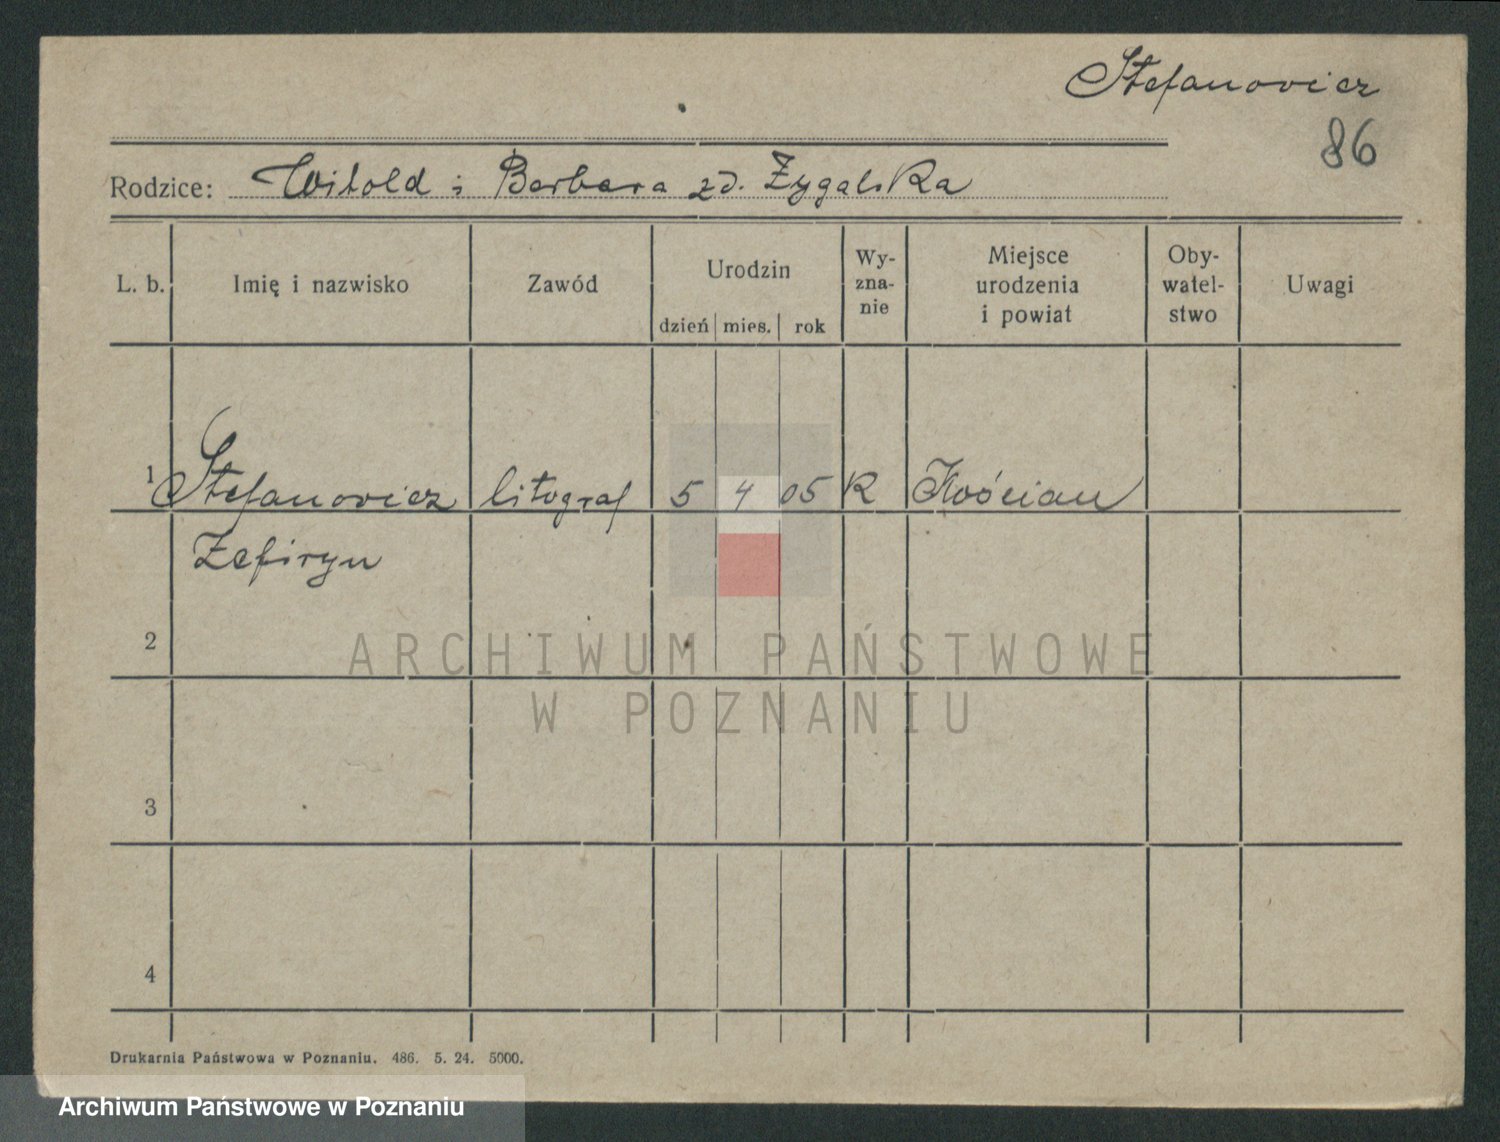 Stefanowicz
86
Rodzice: Witold i Barbara zd. Zygalska
L. b. Imię i nazwisko Zawód Urodzin dzień mies. rok Wy-zna-nie Miejsce urodzenia i powiat Oby-watel-stwo Uwagi
1 Stefanowicz litograf 5 4 05 R Kościan
Zefiryn
2
ARCHIWUM PAŃSTWOWE
W POZNANIU
3
4
Drukarnia Państwowa w Poznaniu. 486. 5. 24. 5000.
Archiwum Państwowe w Poznaniu